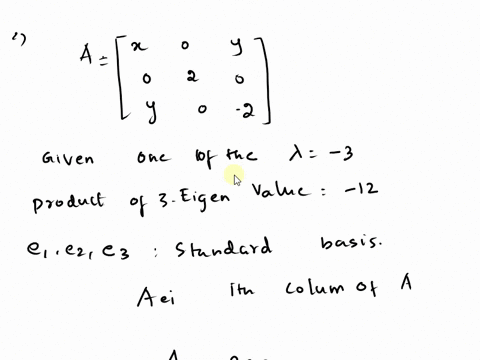 1)
A = [ x 0 y
0 2 0
y 0 -2 ]
Given one of the λ = -3
product of 3 Eigen Value : -12
e1, e2, e3 : Standard basis.
Aei ith colum of A